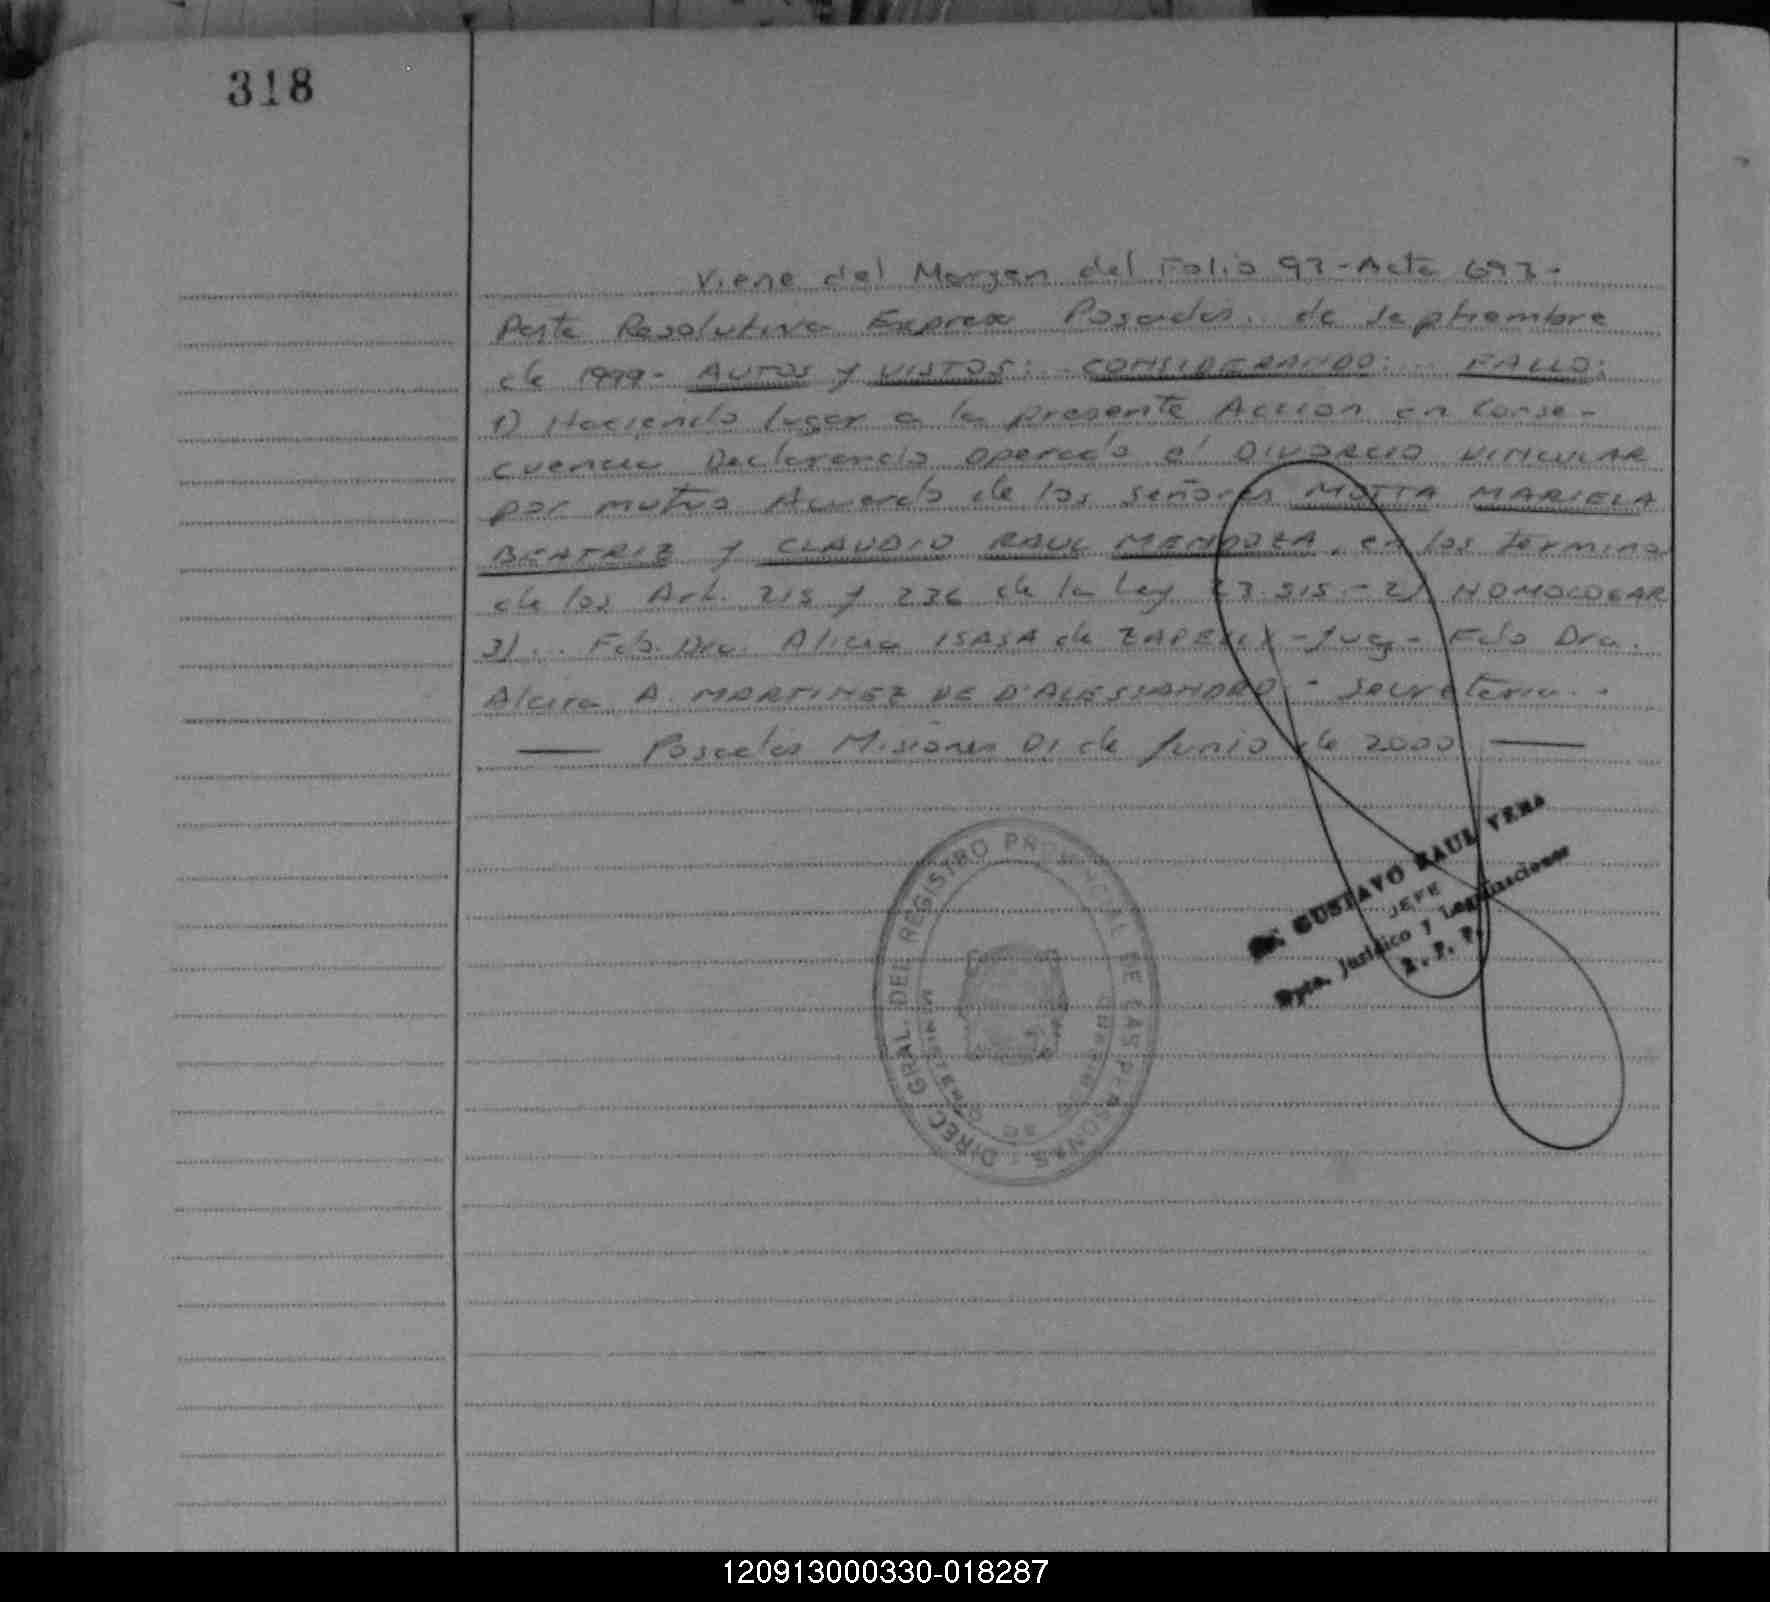 318
Viene del Margen del Folio 93 - Acta 693 -
Parte Resolutiva Expresa Posadas. de septiembre
de 1999 - AUTOS y VISTOS: - CONSIDERANDO: - FALLO:
1) Haciendo lugar a la presente Accion en Conse -
cuencia Declarando operado el DIVORCIO VINCULAR
por mutuo Acuerdo de los señores MOTTA MARIELA
BEATRIZ y CLAUDIO RAUL MENDOZA, en los termino
de los Art. 215 y 236 de la Ley 23.515.- 2) HOMOLOGAR
3) ... Fdo. Dra. Alicia ISASA de - Juez - Fdo Dra.
Alcira A. MARTINEZ DE D'ALESSANDRO - Secretaria. -
Posadas Misiones 01 de Junio de 2000
GUSTAVO RAUL VERA
JEFE
Dpto. Jurídico y Legalizaciones
R. P. P.
DIREC. GRAL. DEL REGISTRO PROVINCIAL DE LAS PERSONAS
MINISTERIO DE GOBIERNO
120913000330-018287